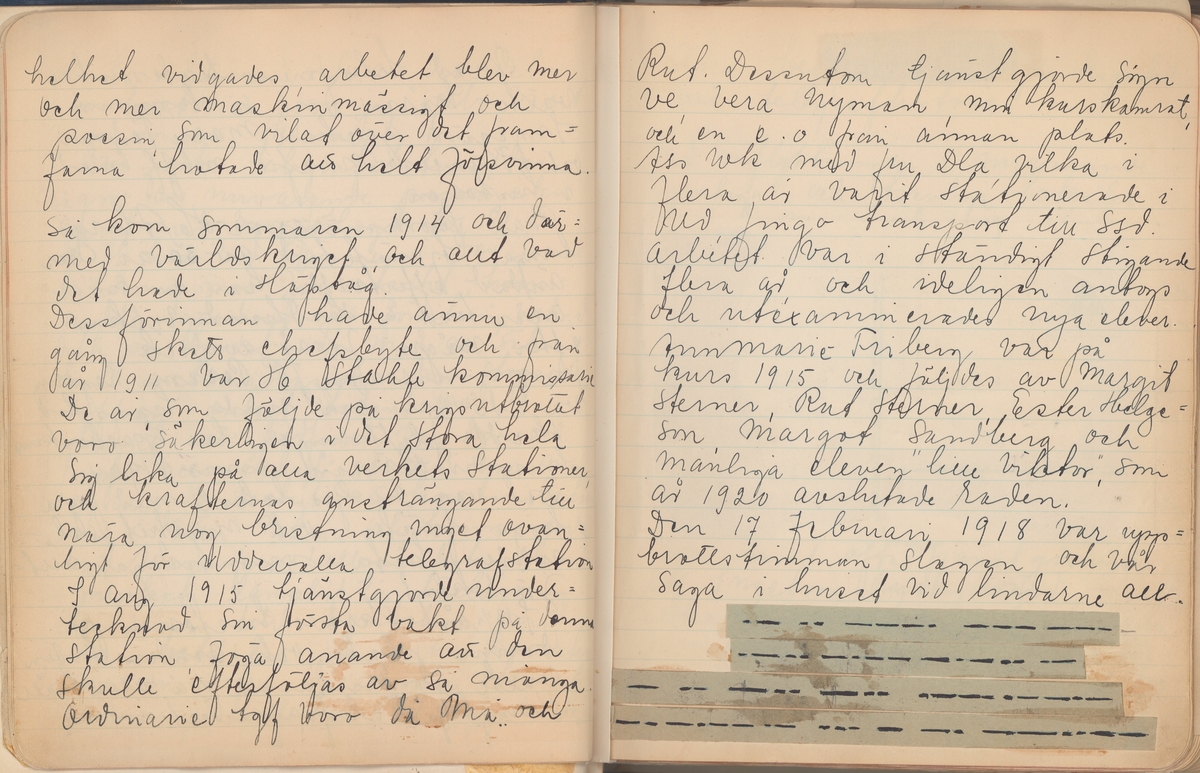 helhet vidgades arbetet blev mer
och mer maskinmässigt och
poesin, som vilat över det fram=
farna hotade att helt försvinna.
Så kom sommaren 1914 och där=
med världskriget, och allt vad
det hade i släptåg.
Dessförinnan hade ännu en
gång skett chefsbyte och från
år 1911 var H Ståhle kommissarie
De år, som följde på krigsutbrottet
voro säkerligen i det stora hela
sig lika på alla verkets stationer,
och krafternas ansträngande till
nära nog bristning inget ovan=
ligt för Uddevalla telegrafstation
I aug 1915 tjänstgjorde under=
tecknad sin första vakt på denna
station, föga anande att den
skulle efterföljas av så många.
Ordinarie tgf voro då Mia och
Rut. Dessutom tjänstgjorde Sign
ve Vera Nyman min kurskamrat,
och en e.o från annan plats.
Ass Wk med fru Dla, vilka i
flera år varit stationerade i
Ud fingo transport till Ssd.
Arbetet var i ständigt stigande
flera år och ideligen antogs
och utexaminerades nya elever.
Annmarie Friberg var på
kurs 1915 och följdes av Margit
Sterner, Rut Sterner, Ester Helge=
son Margot Sandberg och
manliga eleven "lille Viktor", som
år 1920 avslutade raden.
Den 17 Februari 1918 var upp=
brottstimman slagen och vår
saga i huset vid lindarne all.